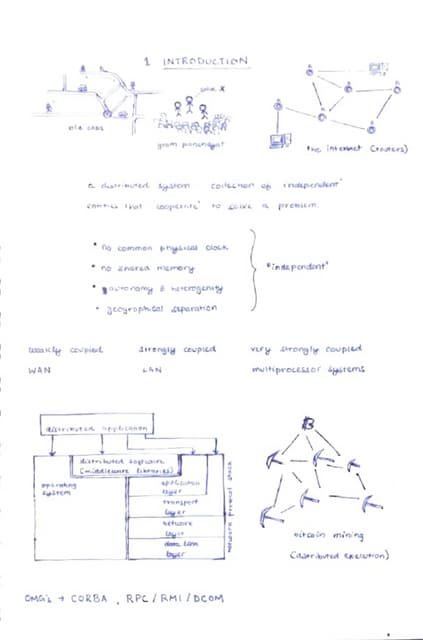 1 INTRODUCTION
vote X
ola cabs
gram panchayat
the internet (routers)
a distributed system collection of independent
entities that cooperate to solve a problem.
• no common physical clock
• no shared memory
• autonomy & heterogenity
• geographical separation
"independent"
weakly coupled strongly coupled very strongly coupled
WAN LAN multiprocessor systems
distributed application
distributed software
(middleware libraries)
operating
system
application
layer
transport
layer
network
layer
data link
layer
network protocol stack
B
bitcoin mining
(distributed execution)
OMG's → CORBA, RPC/RMI/DCOM